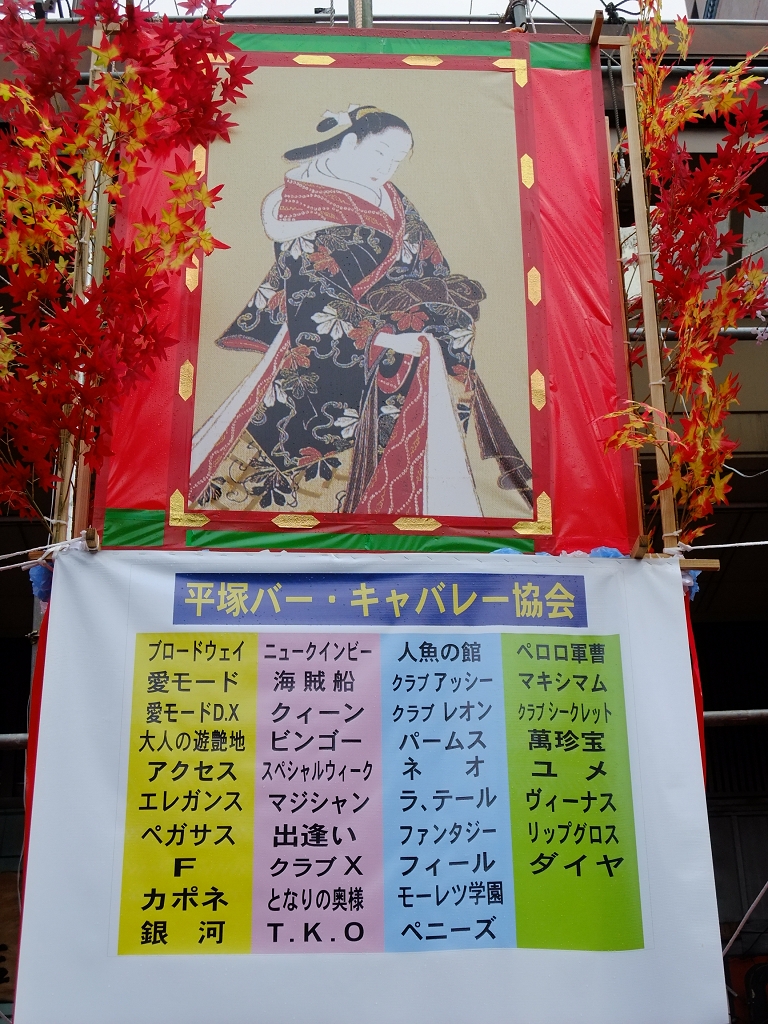 平塚バー・キャバレー協会
ブロードウェイ
愛モード
愛モードD.X
大人の遊艶地
アクセス
エレガンス
ペガサス
F
カポネ
銀河
ニュークインビー
海賊船
クィーン
ビンゴー
スペシャルウィーク
マジシャン
出逢い
クラブX
となりの奥様
T.K.O
人魚の館
クラブアッシー
クラブレオン
パームス
ネオ
ラ、テール
ファンタジー
フィール
モーレツ学園
ペニーズ
ペロロ軍曹
マキシマム
クラブシークレット
萬珍宝
ユメ
ヴィーナス
リップグロス
ダイヤ